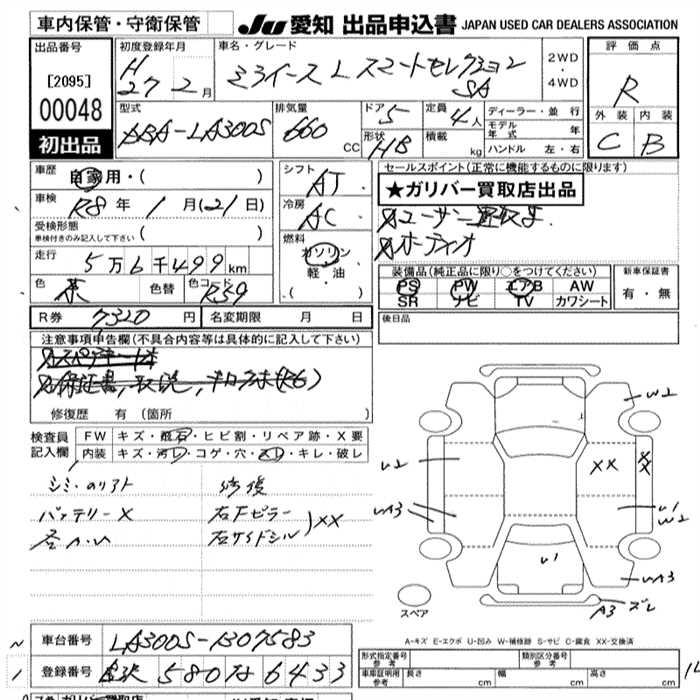 車内保管・守衛保管
JU 愛知 出品申込書 JAPAN USED CAR DEALERS ASSOCIATION
出品番号 [2095] 00048 初出品
初度登録年月 H 27 2月
車名・グレード ミライース L スマートセレクション SA
2WD・4WD
評価点 R
外装 C 内装 B
型式 ABA-LA300S
排気量 660 CC
ドア 5 定員 4人
形状 HB 積載 kg
ディーラー・並行
モデル年式 年
ハンドル 左・右
車歴 自家用・( )
車検 R8年 1月(21日)
受検形態 車検付きのみ記入して下さい ( )
走行 5万6千499km
色 茶 色替 色コード R59
シフト AT
冷房 AC
燃料 ガソリン 軽・油 ・( )
セールスポイント(正常に機能するものに限ります)
★ガリバー買取店出品
ユーザー買取車
オーディオ
装備品(純正品に限り○をつけてください)
PS PW エアB AW
SR ナビ TV カワシート
新車保証書 有・無
R券 7320円 名変期限 月 日
後日品
注意事項申告欄(不具合内容等は具体的に記入して下さい)
スペアキー1本
保証書、取説、キロラホ(R6)
修復歴 有 (箇所
検査員記入欄
FW キズ・飛石・ヒビ割・リペア跡・X要
内装 キズ・汚レ・コゲ・穴・スレ・キレ・破レ
シミ・のリアト 修復
バッテリーX 右Fピラー
右サイドシル )XX
W2
U2 XX XX
UA3 U1 W2
U1
UA3
A3 ズレ
スペア
A-キズ E-エクボ U-凹み W-補修跡 S-サビ C-腐食 XX-交換済
車台番号 LA300S-1307583
登録番号 580 な 6433
形式指定番号 参考 類別区分番号 参考
車庫証明用 参考 長さ cm 幅 cm 高さ cm